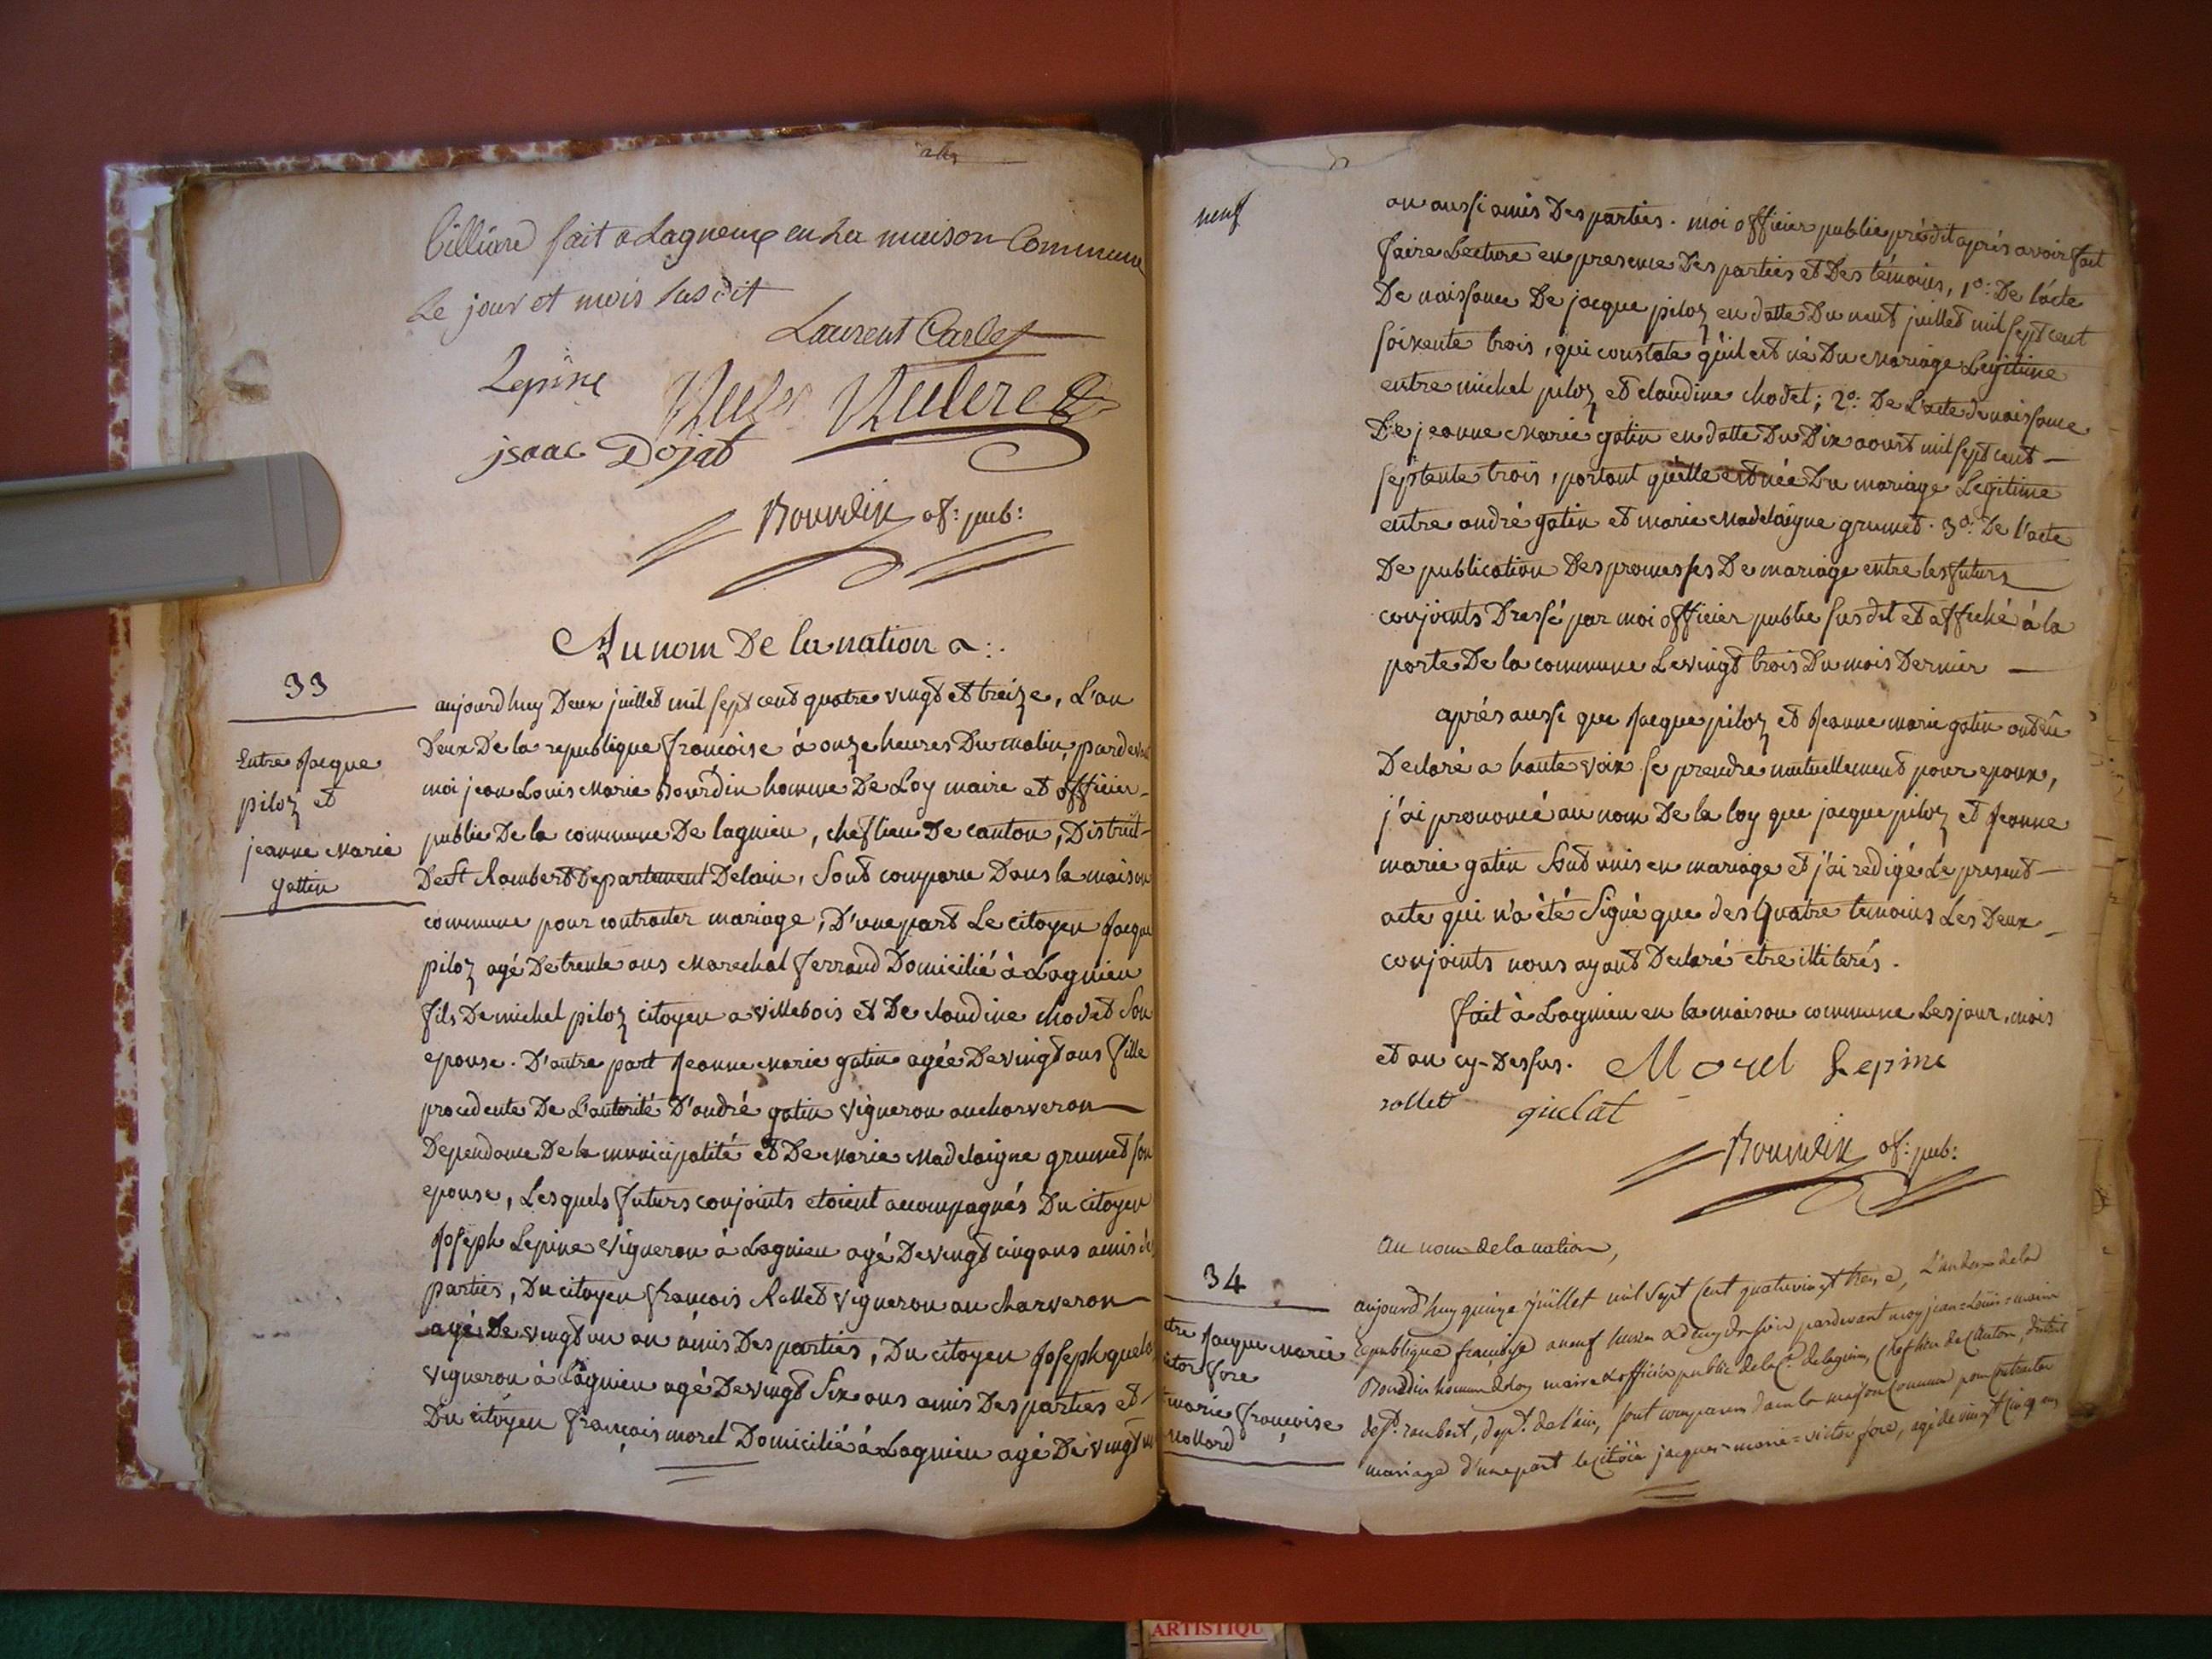 Billiard fait a Lagneux en La maison Commune
Le jour et mois susdit
Laurent Carles
Lepine
isaac Dojat
Bourdin of: pub:
Au nom De la nation
33
aujourd huy Deux juillet mil sept cent quatre vingt et treize, L'an
Deux De la republique françoise à onze heures Du matin, pardevant
Entre Jacque
piloz et
jeanne Marie
gattin
moi jean Louis Marie Bourdin homme De Loy maire et officier
public De la commune De lagnieu, chef lieu De canton, District
De St Rambert Departement Delain, Sont comparu Dans la maison
commune pour contracter mariage, D'une part Le citoyen Jacque
piloz agé De trente ans Marechal ferrand Domicilié à Lagnieu
fils De michel piloz citoyen a villebois et De claudine chodet Son
epouse. D'autre part Jeanne Marie gatin agée De vingt ans fille
procedente De L'autorité D'andré gatin vigneron au charveron
Dependance De la municipalité et De Marie Madelaigne grumet son
epouse, Lesquels futurs conjoints etoient accompagnés Du citoyen
Joseph Lepine vigneron à Lagnieu agé De vingt cinq ans amis des
parties, Du citoyen françois Rollet vigneron au charveron
agé De vingt un an amis Des parties, Du citoyen Joseph
vigneron à Lagnieu agé De vingt Six ans amis Des parties et
Du citoyen françois morel Domicilié à Lagnieu agé De vingt
neuf
an aussi amis Des parties. moi officier public prédit après avoir fait
faire Lecture en presence Des parties et Des témoins, 1o: De l'acte
De naissance De jacque piloz en datte Du neuf juillet mil sept cent
soixente trois, qui constate qu'il est né Du Mariage Legitime
entre michel piloz et claudine chodet; 2o: De L'acte de naissance
De jeanne Marie gatin en datte Du Dix aoust mil sept cent
septente trois, portant qu'elle est née Du mariage Legitime
entre andré gatin et marie Madelaigne grumet. 3o: De l'acte
De publication Des promesses De mariage entre les futurs
conjoints Dressé par moi officier public susdit et affiché à la
porte De la commune Le vingt trois Du mois Dernier
après aussi que Jacque piloz et Jeanne marie gatin ont eû
Declaré a haute voix se prendre mutuellement pour epoux,
j'ai prononcé au nom De la loy que jacque piloz et Jeanne
marie gatin Sont unis en mariage et j'ai redigé Le present
acte qui n'a été Signé que des Quatre temoins Les Deux
conjoints nous ayant Declaré etre illiterés.
fait à Lagnieu en la maison commune Les jour, mois
et an cy-Dessus. Morel Lepine
rollet quelat
Bourdin of: pub:
au nom de la nation,
34
aujourd'huy quinze juillet mil sept cent quatrevingt treize, L'an deux de la
republique françoise a neuf heures du soir pardevant moy jean=Louis=marie
Bourdin homme de loy maire et officier public de la Ce. de lagnieu, chef lieu de Canton, district
de St. rambert, dept. de l'ain, sont comparus dans la maison Commune pour contracter
mariage d'une part le citoien jacques=marie=victor fore, agé de vingt cinq ans
tre Jacque Marie
ictor fore
marie françoise
Mollard
ARTISTIQU